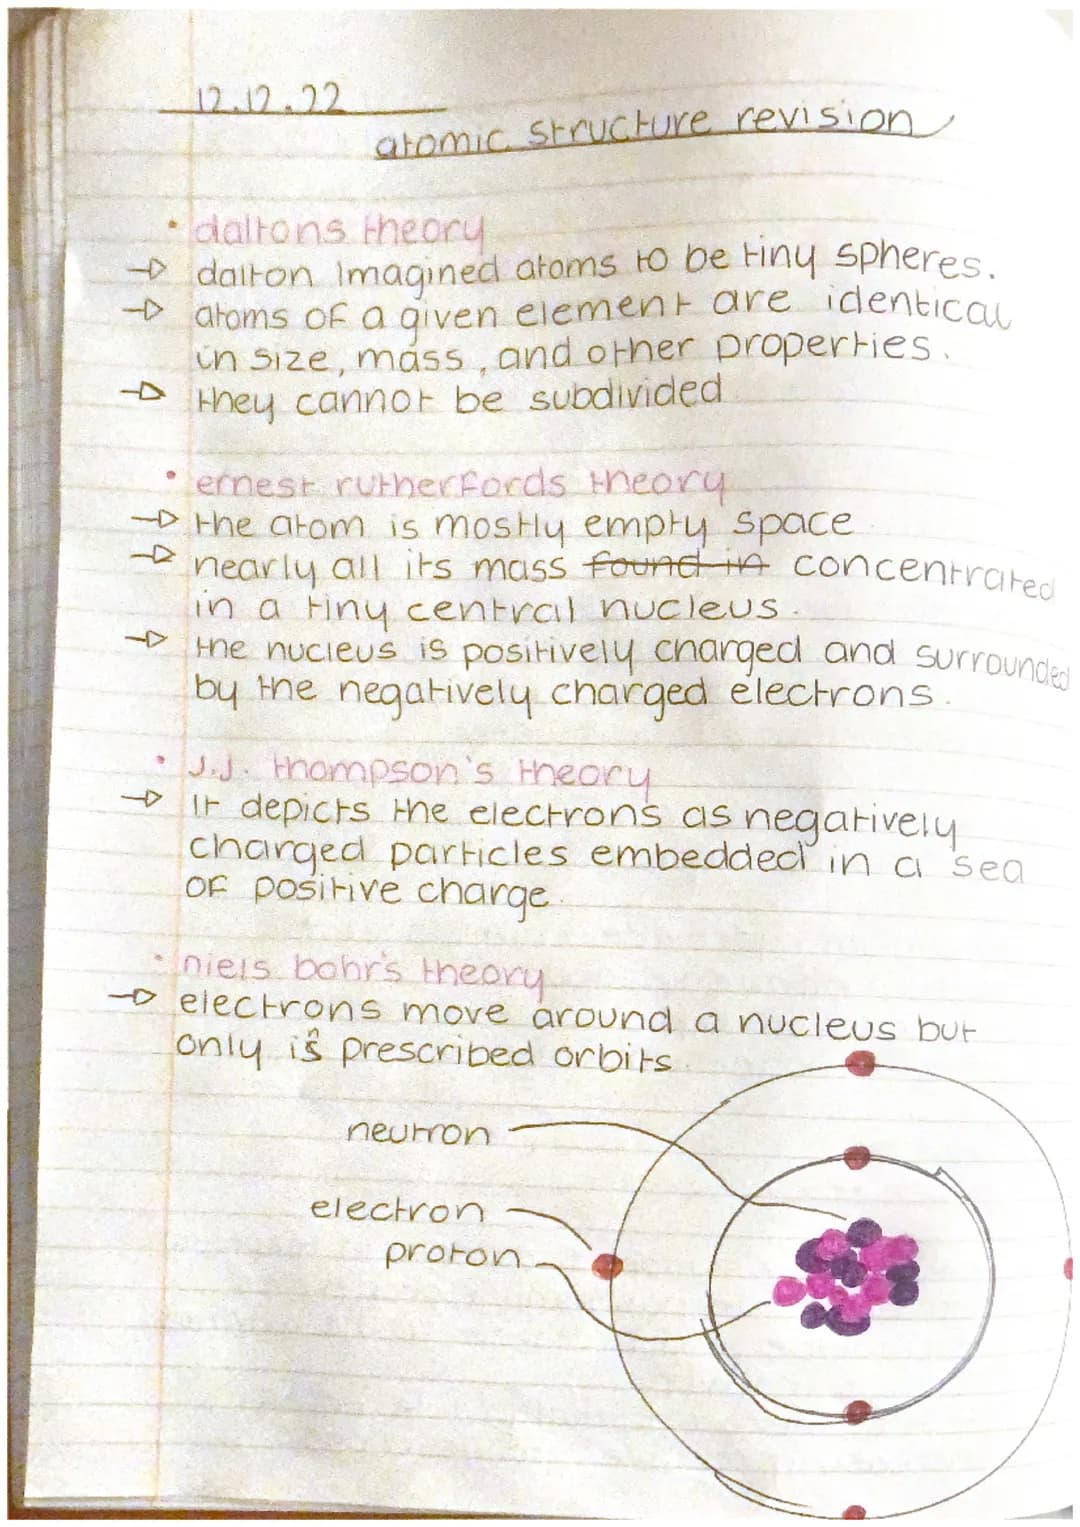 12.12.22
atomic structure revision
• daltons theory
→ dalton imagined atoms to be tiny spheres.
→ atoms of a given element are identical
in size, mass, and other properties.
→ they cannot be subdivided
• ernest rutherfords theory
→ the atom is mostly empty space
→ nearly all its mass found in concentrated
in a tiny central nucleus.
→ the nucleus is positively charged and surrounded
by the negatively charged electrons.
• J.J. thompson's theory
→ It depicts the electrons as negatively
charged particles embedded in a sea
of positive charge.
• niels bohr's theory
→ electrons move around a nucleus but
only in prescribed orbits.
neutron
electron
proton